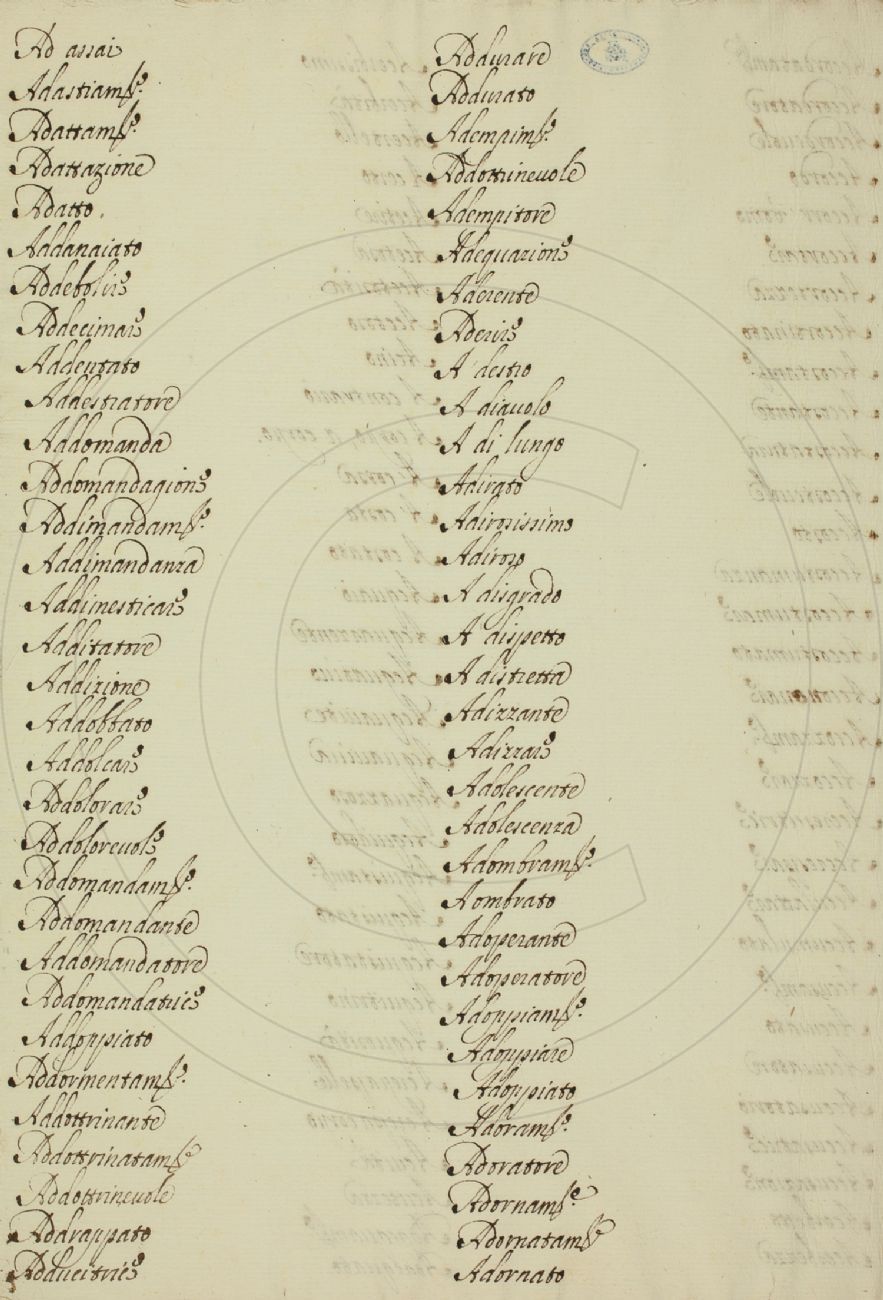 Ad assai
Adastiam.to
Adattam.to
Adattazione
Adatto.
Addanaiato
Addebolire
Addecimare
Addentato
Addestratore
Addomanda
Addomandagione
Addimandam.to
Addimandanza
Addimesticare
Additatore
Addizione
Addobbato
Addolcare
Addolorare
Addolorevole
Addomandam.to
Addomandante
Addomandatore
Addomandatrice
Addoppiato
Addormentam.to
Addottrinante
Addottrinatam.te
Addottrinevole
Addrappato
Adducitrice
Addurare
Addurato
Adempim.to
Addottrinevole
Adempitore
Adequazione
Aderente
Aderire
A destro
A diavolo
A di lungo
Adirato
Adirosissimo
Adiroso
A disgrado
A dispetto
A distretta
Adizzante
Adizzare
Adolescente
Adolescenza
Adombram.to
Aombrato
Adoperante
Adoperatore
Adoppiam.to
Adoppiare
Adoppiato
Adoram.to
Adoratore
Adornam.te
Adornatam.te
Adornato